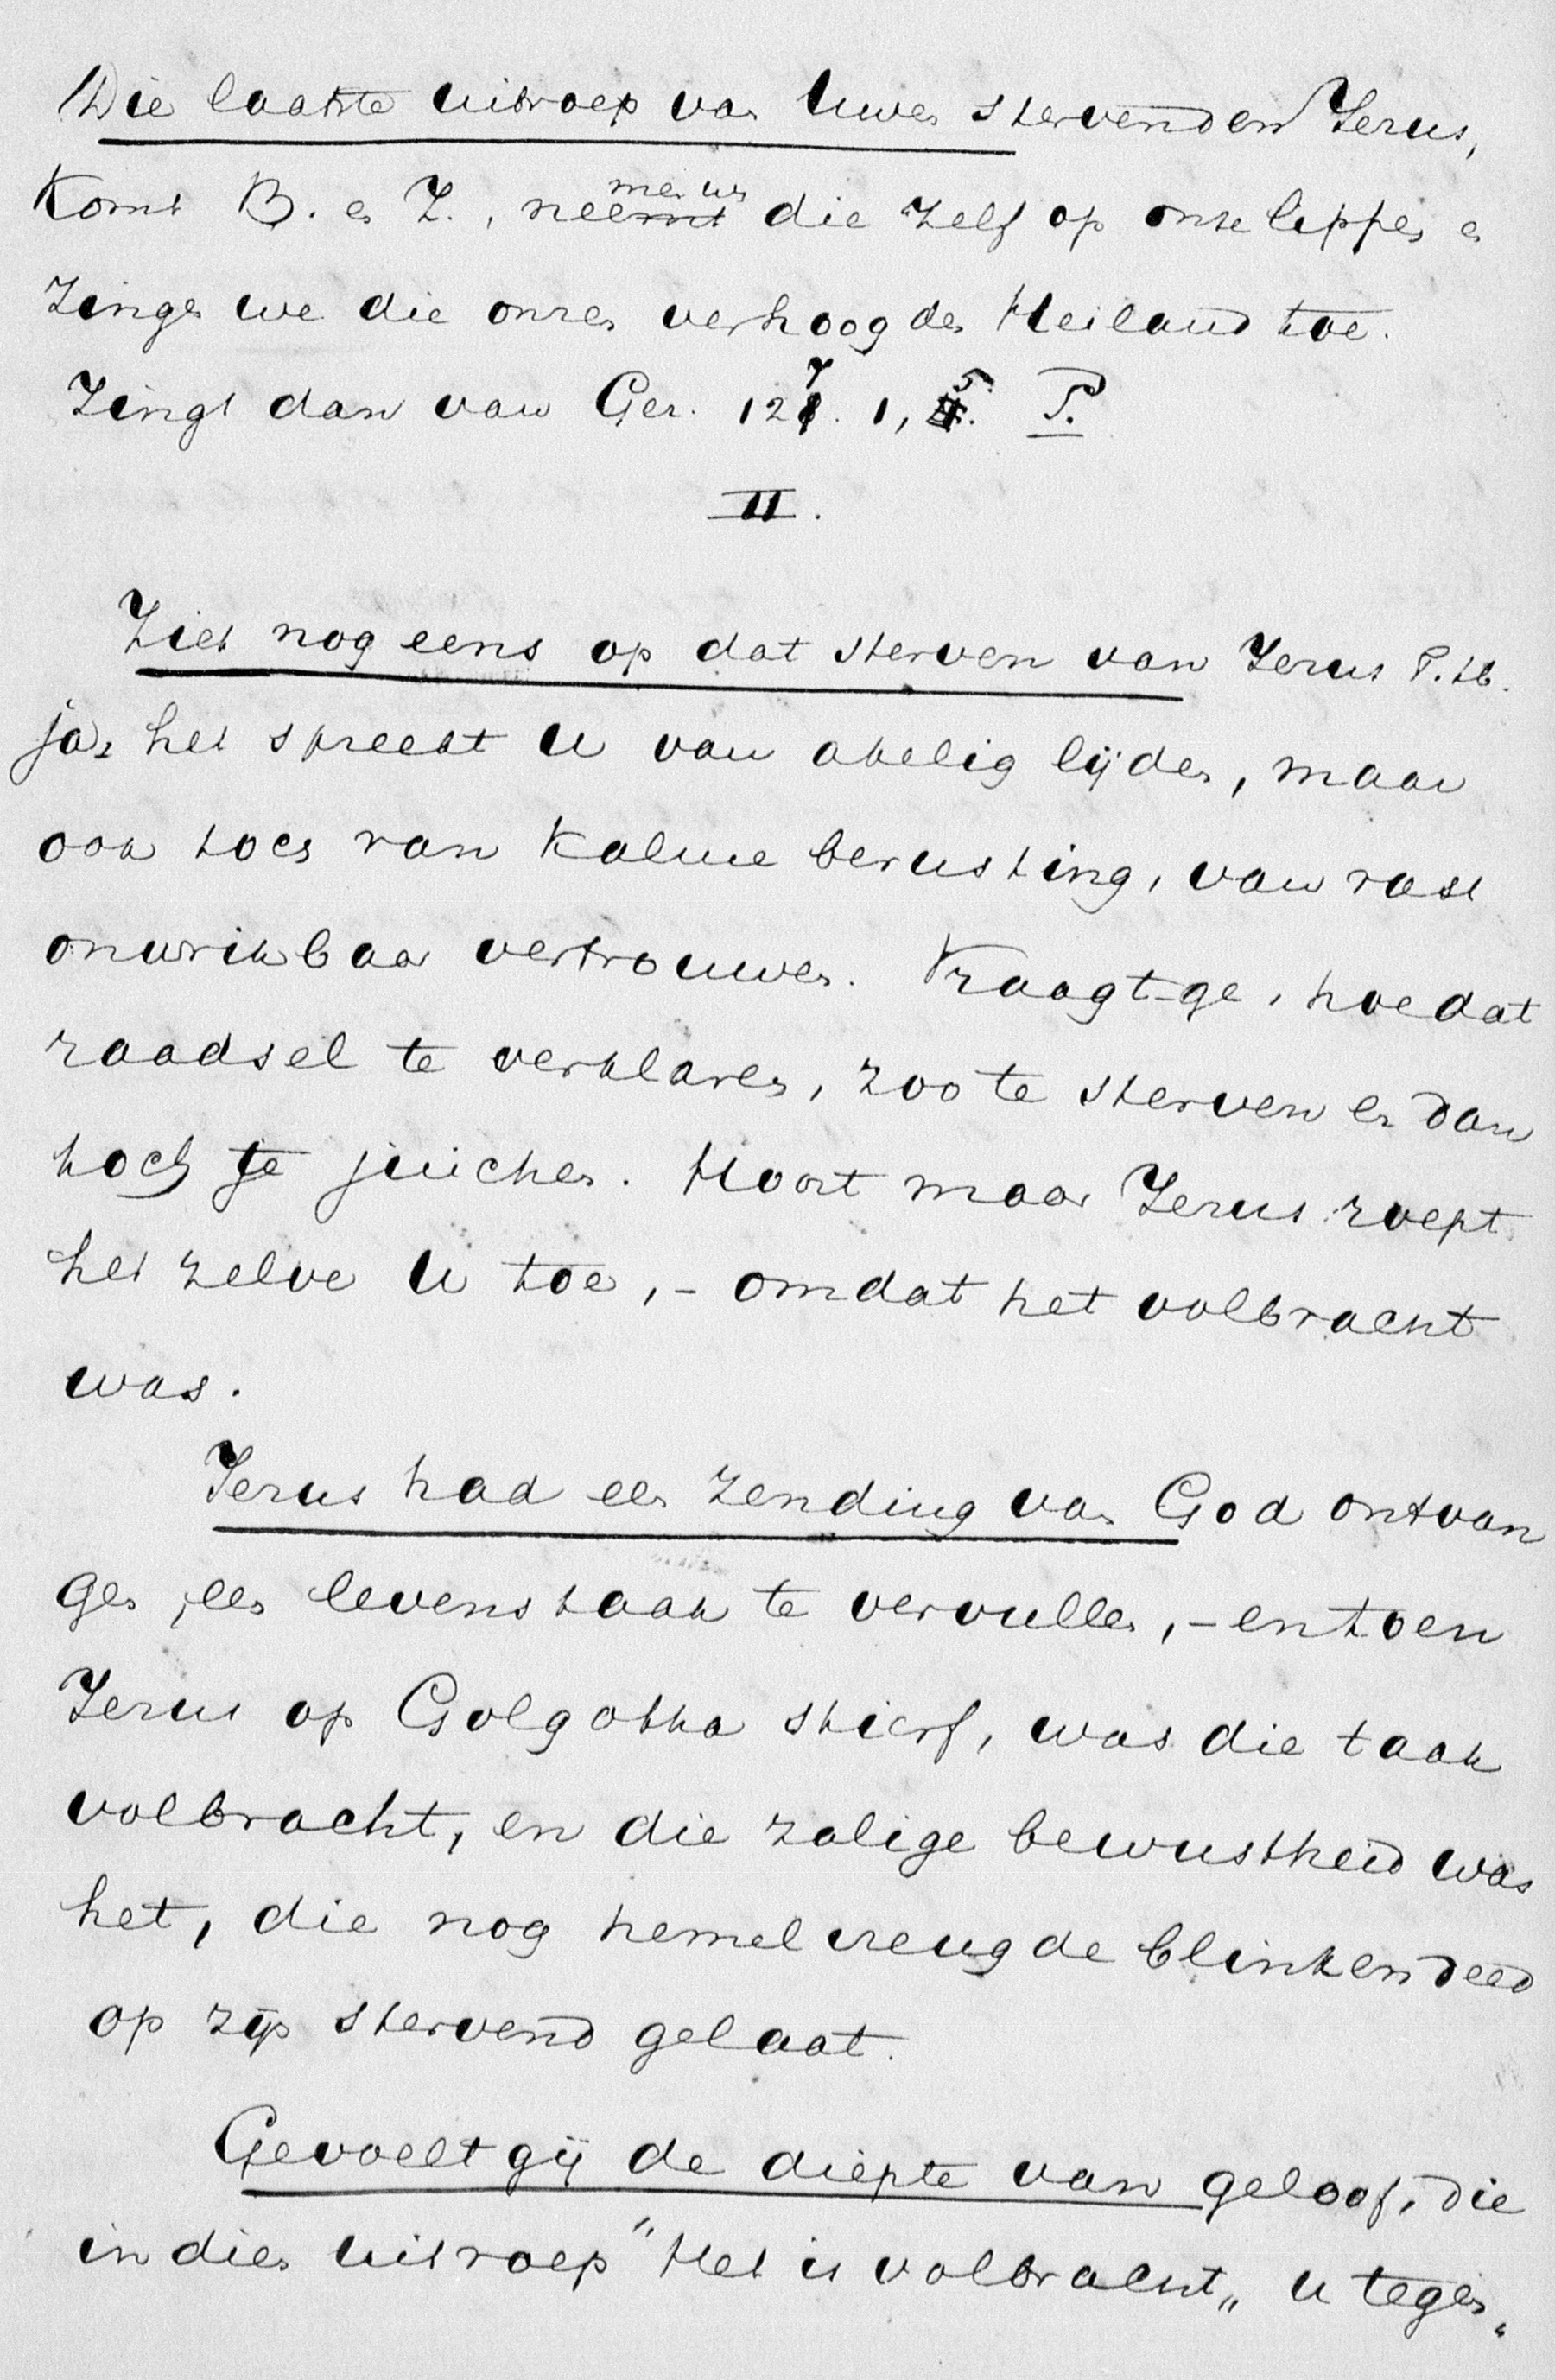 Die laatste uitroep van Uwen stervenden Jezus,
Komt B. en Z., neemen we die zelf op onze lippen en
zingen we die onzen verhoogden Heiland toe.
Zingt dan van Gez. 127. 1, 5. P.
II.
Ziet nog eens op dat sterven van Jezus
ja, het spreekt U van akelig lijden, maar
ook toch van kalme berusting, van vast
onwrikbaar vertrouwen. Vraagt-ge, hoe dat
raadsel te verklaren, zoo te sterven en dan
toch te juichen. Hoort maar Jezus roept
het zelve U toe, - omdat het volbracht
was.
Jezus had een zending van God ontvan
gen, een levenstaak te vervullen, - en toen
Jezus op Golgotha stierf, was die taak
volbracht, en die zalige bewustheid was
het, die nog hemelvreugde blinken deed
op zijn stervend gelaat.
Gevoelt gij de diepte van geloof, die
in dien uitroep "Het is volbracht„ U tegen„